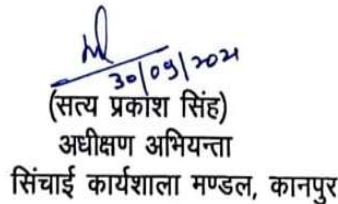 30/09/2021
(सत्य प्रकाश सिंह)
अधीक्षण अभियन्ता
सिंचाई कार्यशाला मण्डल, कानपुर